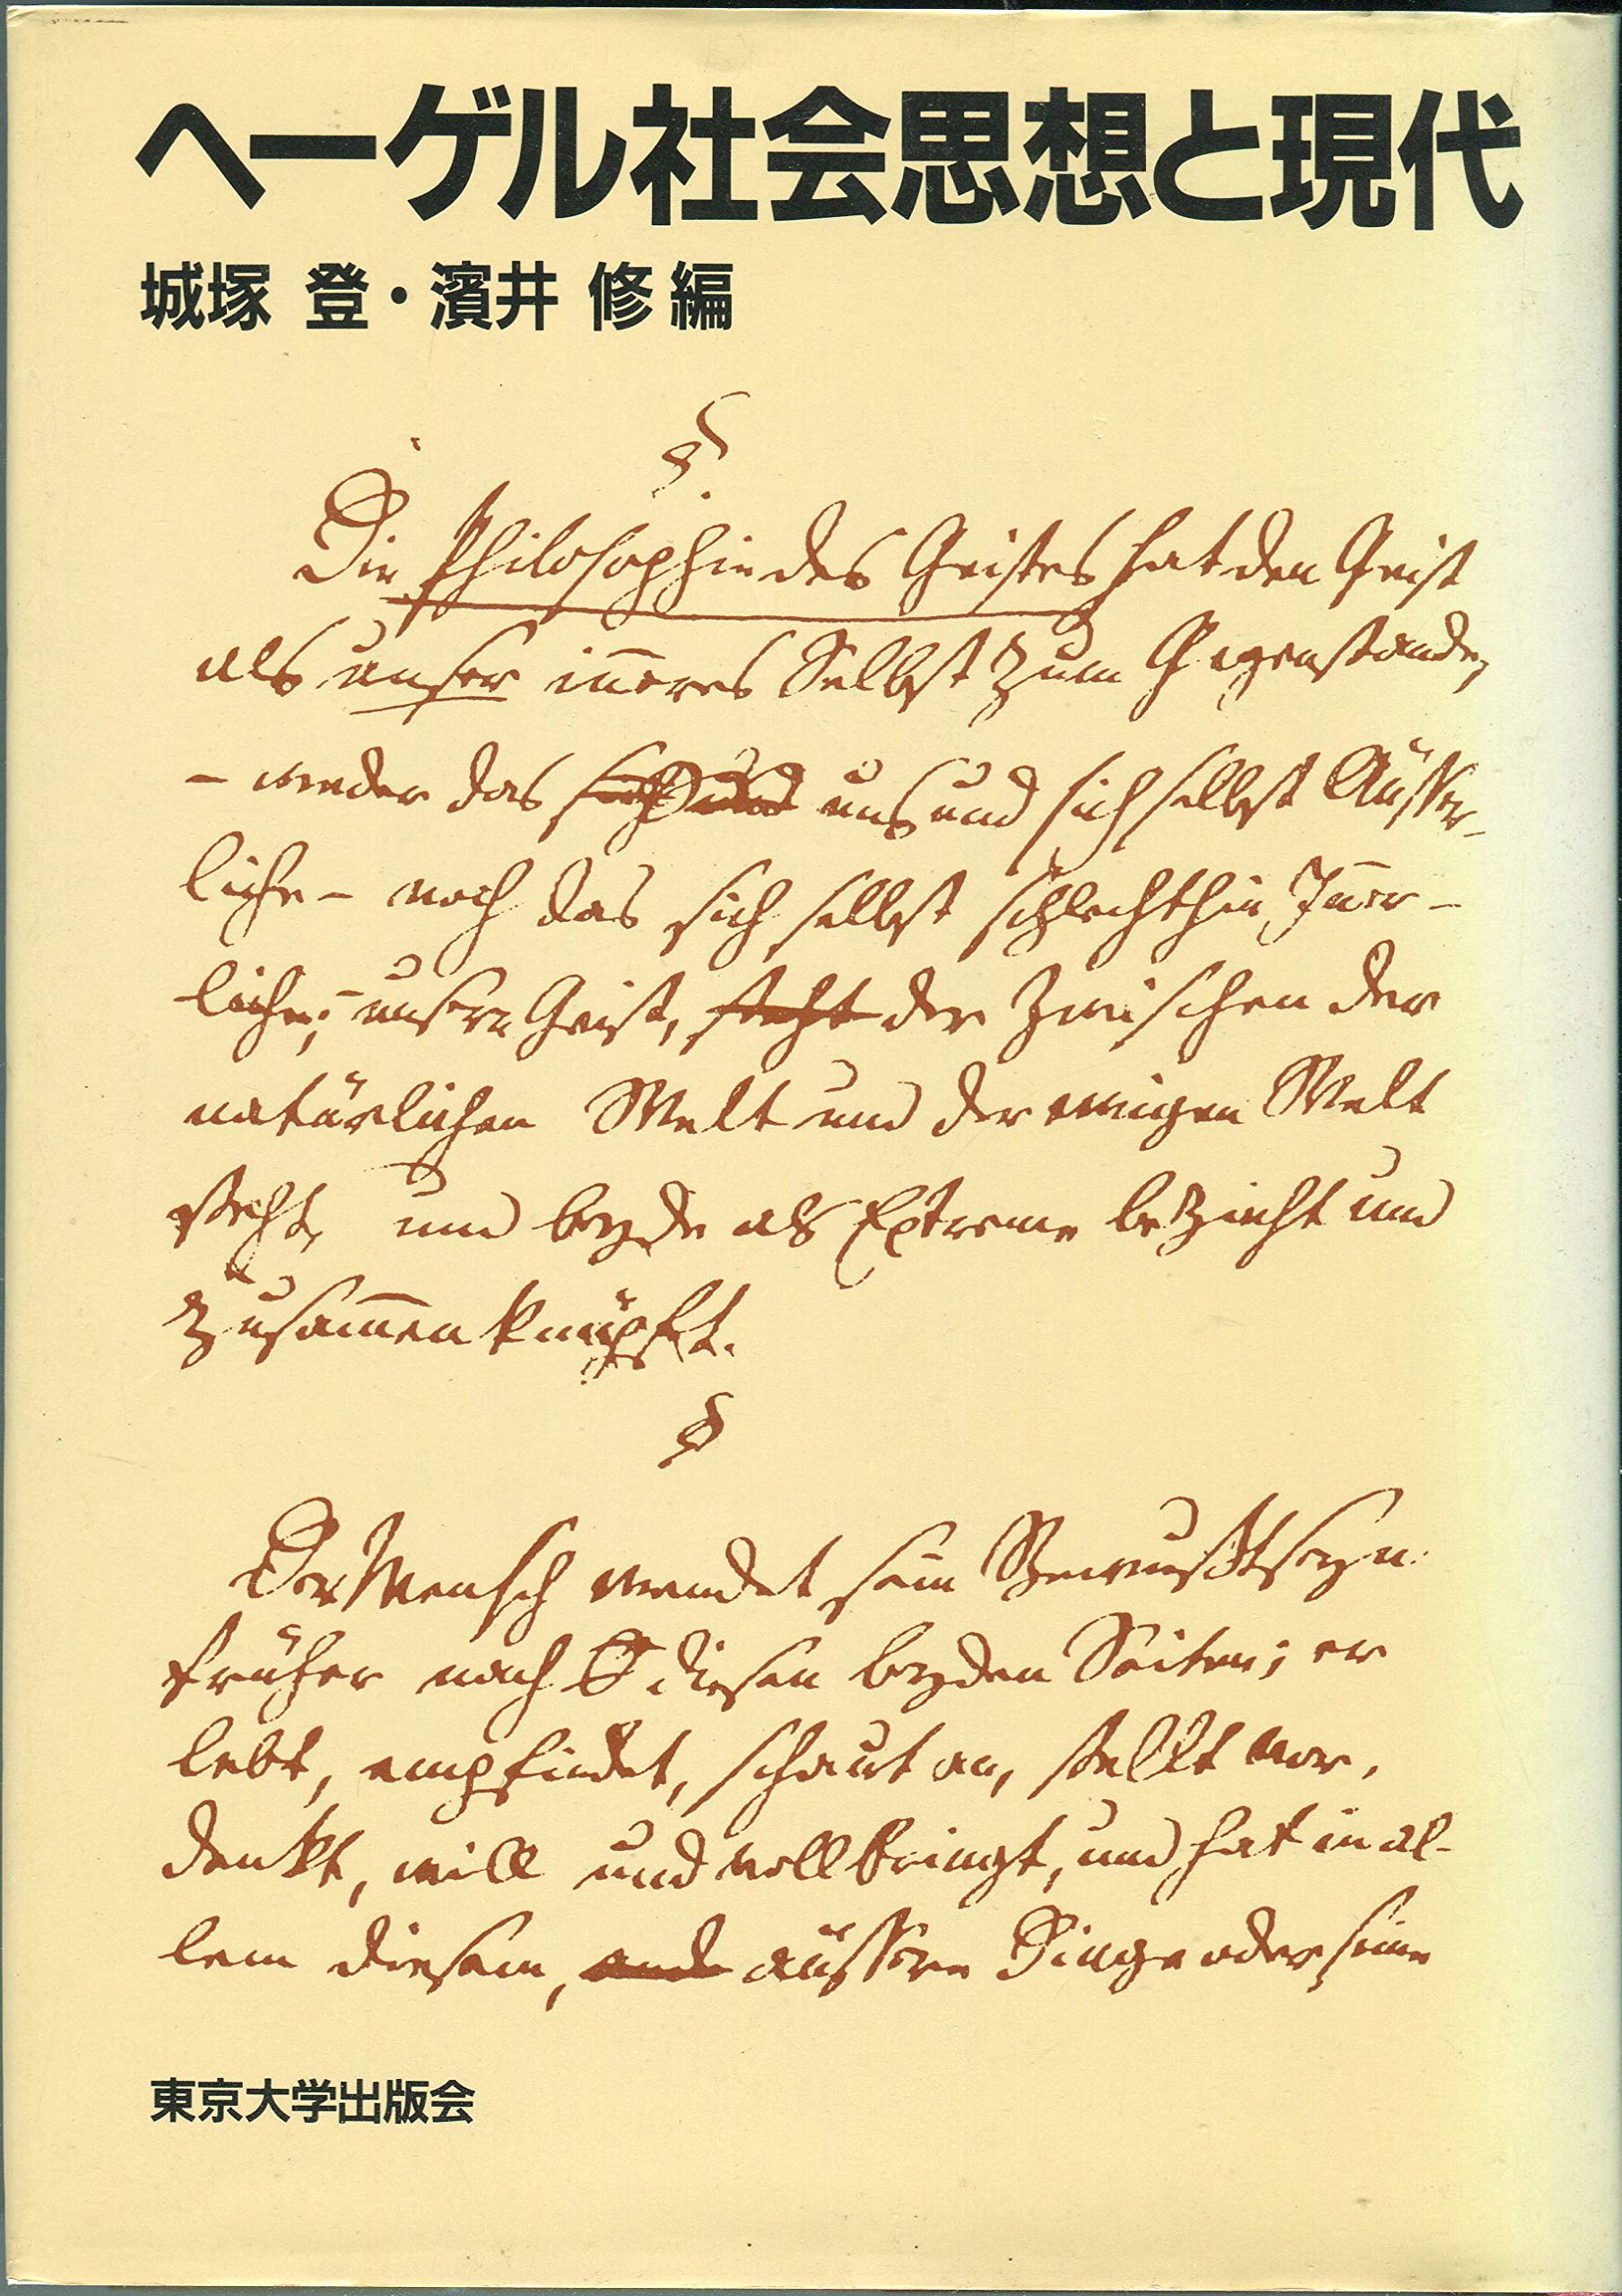 ヘーゲル社会思想と現代
城塚 登・濱井 修 編
§.
Die Philosophie des Geistes hat den Geist
als unser inneres Selbst zum Gegenstande,
– weder das uns und sich selbst Äusser-
liche – noch das sich selbst schlechthin Inner-
liche; – unsern Geist, steht der zwischen der
natürlichen Welt und der ewigen Welt
steht, und beyde als Extreme bezieht und
zusammenknüpft.
§
Der Mensch wendet sein Bewußtseyn
früher nach diesen beyden Seiten; er
lebt, empfindet, schaut an, stellt vor,
denkt, will und vollbringt, und hat in al-
lem diesem, äussere Dinge oder seine
東京大学出版会